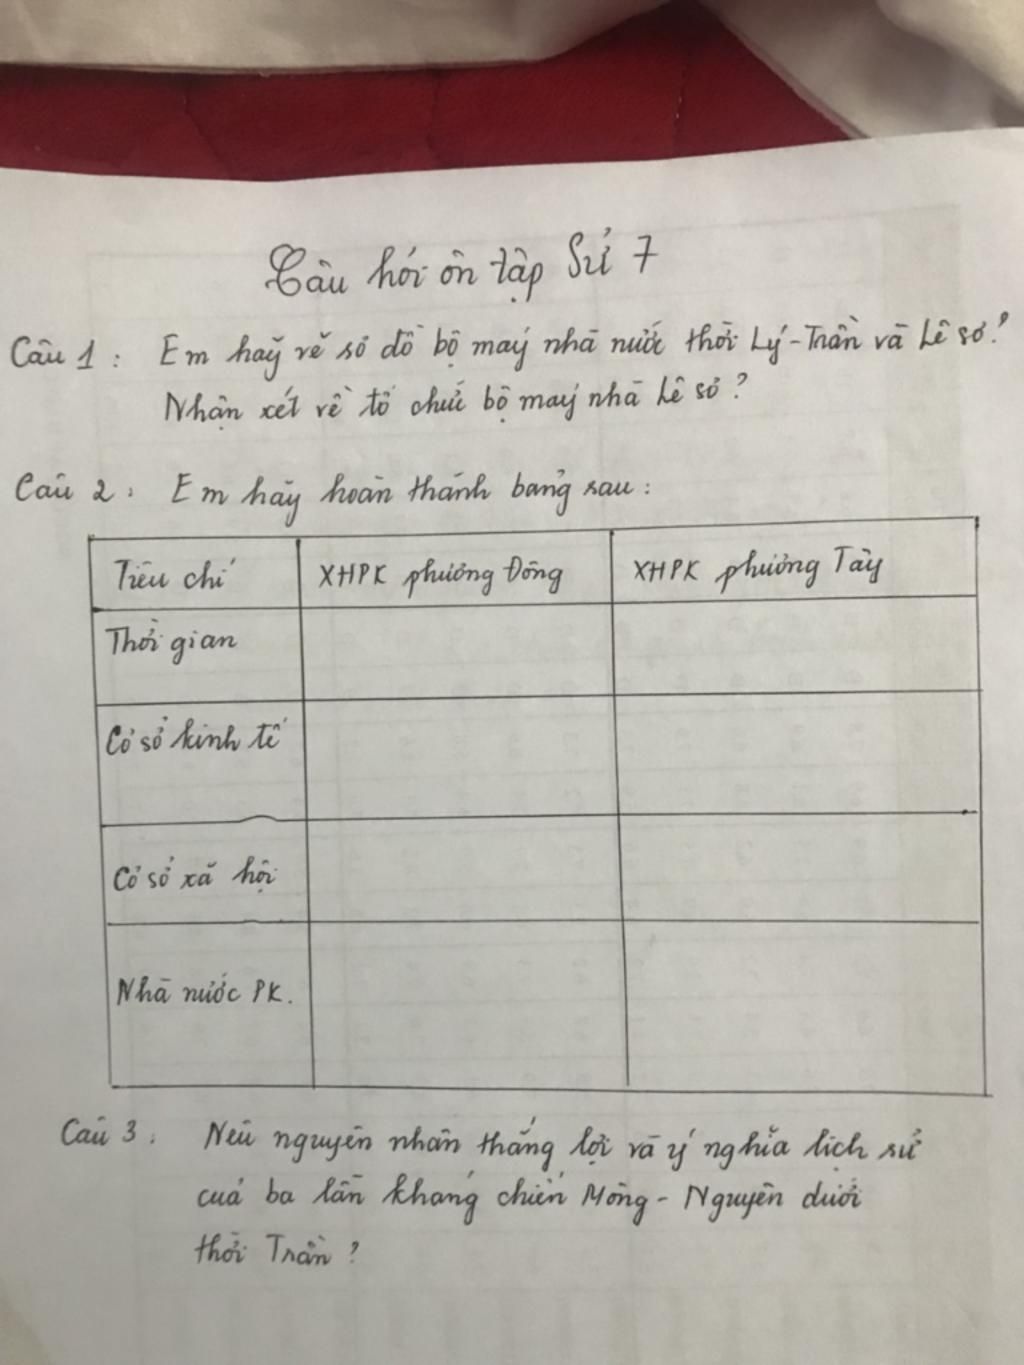 Câu hỏi ôn tập Sử 7
Câu 1: Em hãy vẽ sơ đồ bộ máy nhà nước thời Lý-Trần và Lê sơ?
Nhận xét về tổ chức bộ máy nhà Lê sơ?
Câu 2: Em hãy hoàn thành bảng sau:
Tiêu chí XHPK phương Đông XHPK phương Tây
Thời gian
Cơ sở kinh tế
Cơ sở xã hội
Nhà nước PK.
Câu 3: Nêu nguyên nhân thắng lợi và ý nghĩa lịch sử
của ba lần kháng chiến Mông - Nguyên dưới
thời Trần?